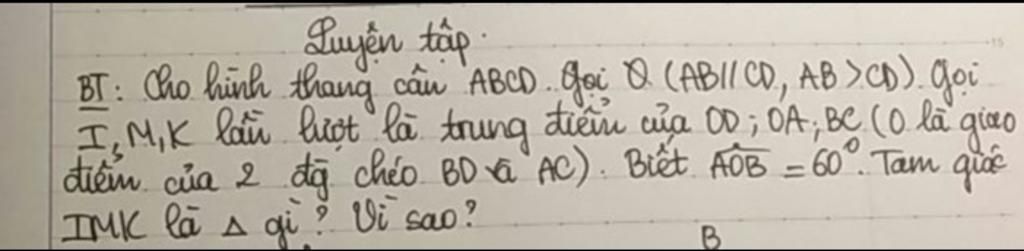 Luyện tập.
BT: Cho hình thang cân ABCD. Gọi O (AB//CD, AB>CD). Gọi
I, M, K lần lượt là trung điểm của OD; OA; BC (O là giao
điểm của 2 đg chéo BD và AC). Biết AOB = 60°. Tam giác
IMK là Δ gì? Vì sao?
B